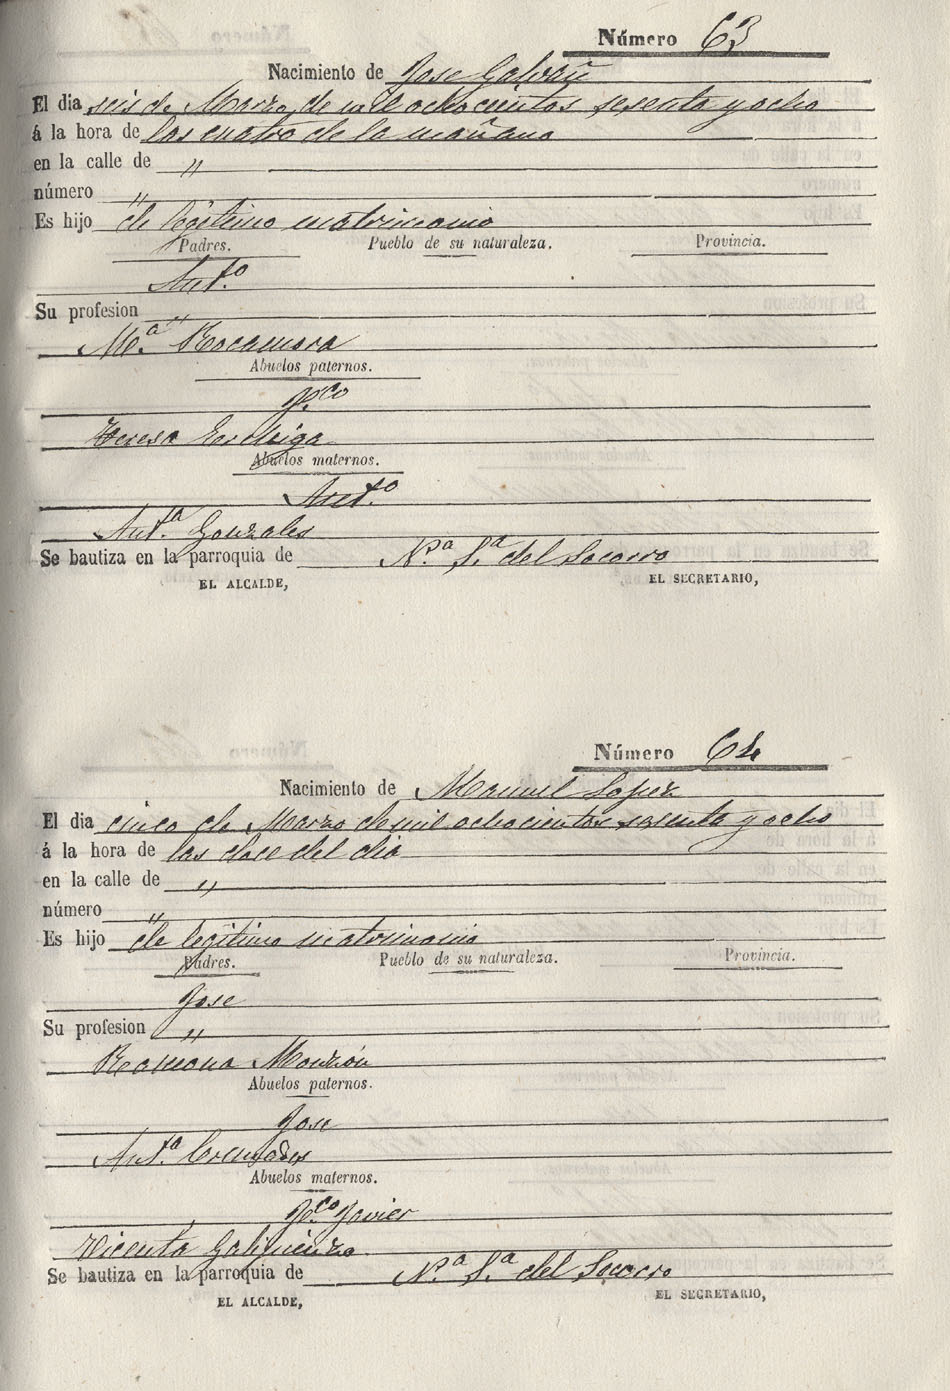 Número 63
Nacimiento de Jose Galvañ
El dia seis de Marzo de mil ochocientos sesenta y ocho
á la hora de las cuatro de la mañana
en la calle de "
número "
Es hijo de legitimo matrimonio
Padres. Pueblo de su naturaleza. Provincia.
Ant.º
Su profesion "
M.ª Rocamora
Abuelos paternos.
F.co
Teresa
Abuelos maternos.
Ant.º
Ant.ª Gonzales
Se bautiza en la parroquia de N.ª S.ª del Socorro
EL ALCALDE, EL SECRETARIO,
Número 64
Nacimiento de Manuel Lopez
El dia cinco de Marzo de mil ochocientos sesenta y ocho
á la hora de las doce del dia
en la calle de "
número "
Es hijo de legitimo matrimonio
Padres. Pueblo de su naturaleza. Provincia.
Jose
Su profesion "
Ramona Monzón
Abuelos paternos.
Jose
Ant.ª
Abuelos maternos.
F.co Javier
Vicenta Galipienzo
Se bautiza en la parroquia de N.ª S.ª del Socorro
EL ALCALDE, EL SECRETARIO,